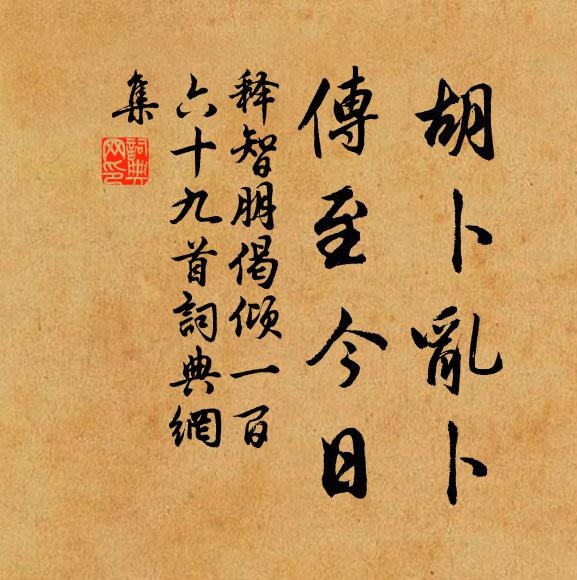 胡卜亂卜
傳至今日
释智朋偈倾一百
六十九首詞典網
集
詞典
网印